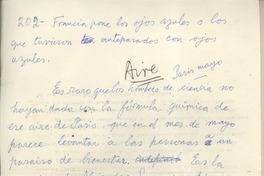 202- Francia pone los ojos azules a los
que tuvieron antepasados con ojos
azules.
Aire
Paris mayo
Es raro que los hombres de ciencia no
hayan dado con la fórmula química de
ese aire de Paris, que en el mes de mayo
parece levantar a las personas a un
paraiso de bienestar. Es la